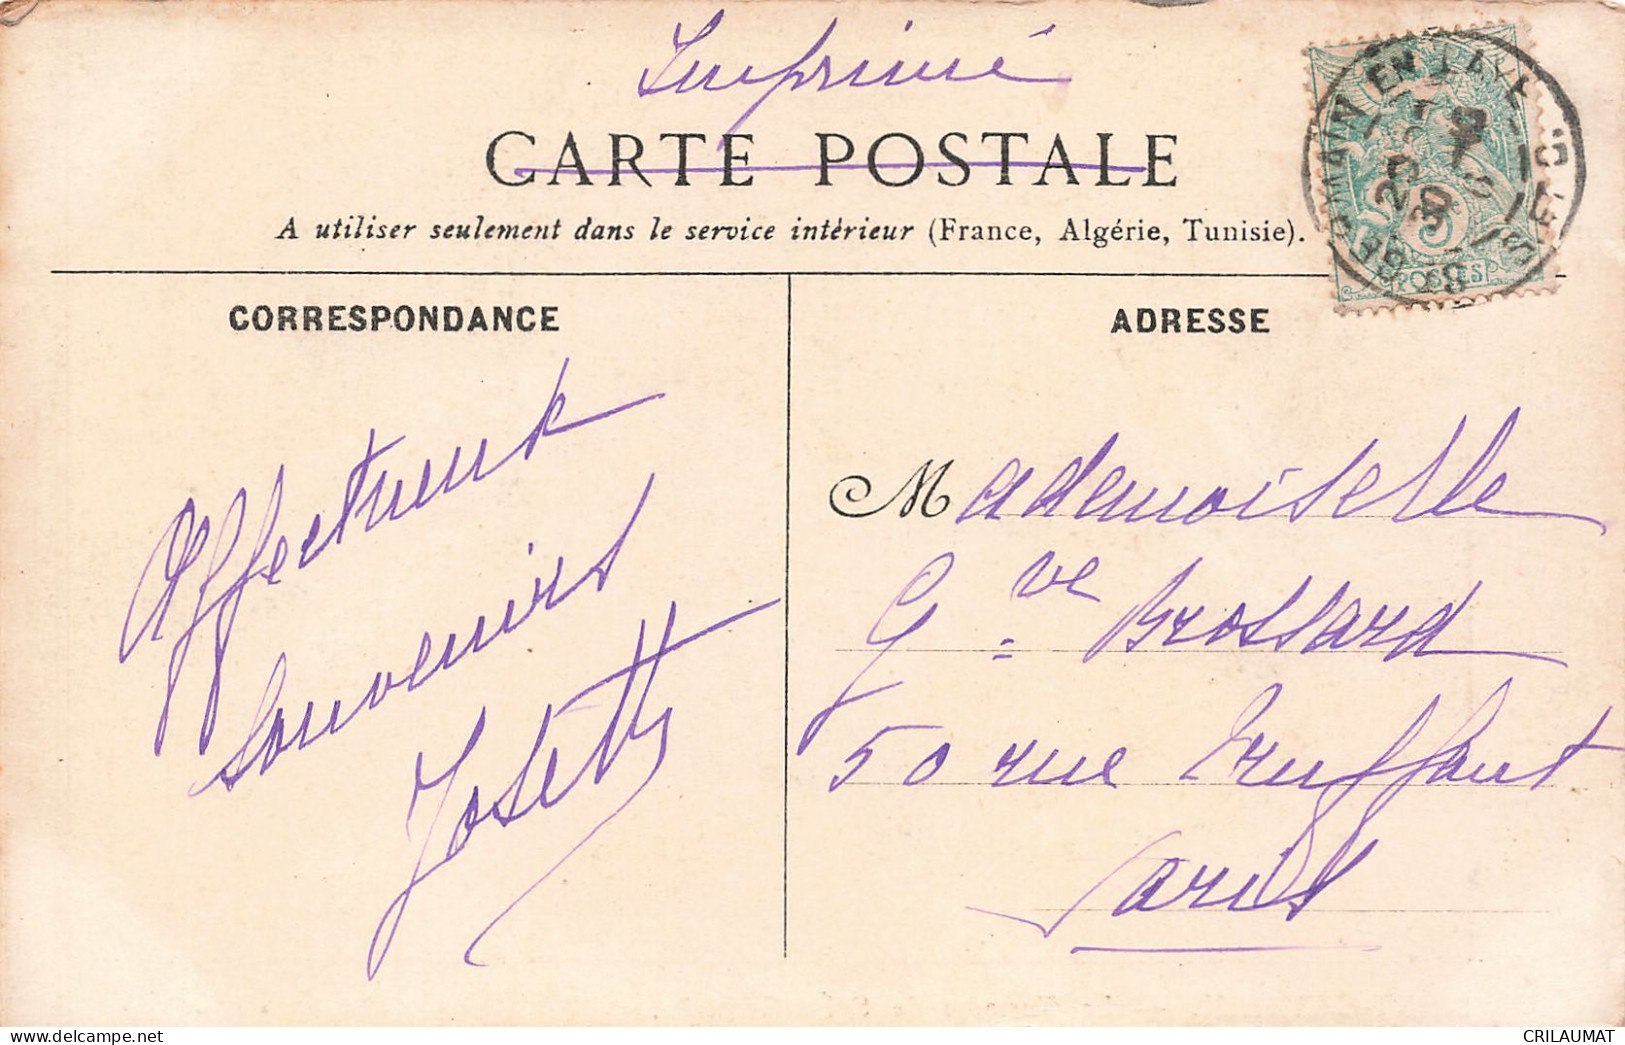 Imprimé
CARTE POSTALE
A utiliser seulement dans le service intérieur (France, Algérie, Tunisie).
EN LAYE
POSTES
CORRESPONDANCE
Affectueux
souvenirs
Josette
ADRESSE
Mademoiselle
Gve Brossard
50 rue Truffaut
Paris
delcampe.net
CRILAUMAT